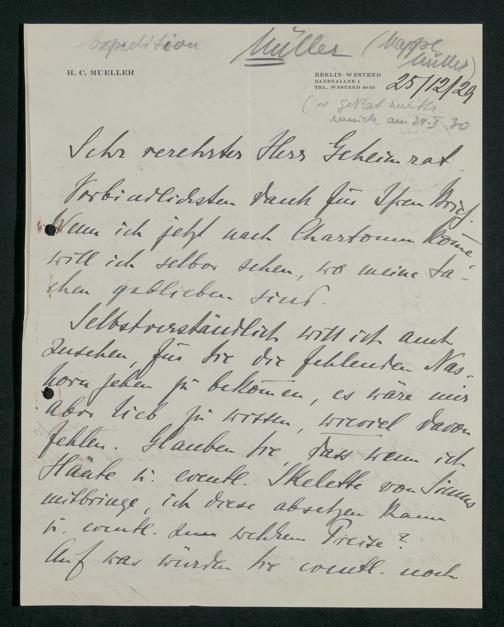 Expedition Müller (Mappe Müller)
H. C. MUELLER
BERLIN-WESTEND
BADENALLEE 1
TEL. WESTEND 4035
25/12/29
zurück am 24.I.30
Sehr verehrter Herr Geheimrat
Verbindlichsten Dank für Ihren Brief.
Wenn ich jetzt nach Chartoum komme
will ich selber sehen, wo meine Sa-
chen geblieben sind.
Selbstverständlich will ich auch
zusehen, für Sie die fehlenden Nas-
horn zu bekommen, es wäre mir
aber lieb zu wissen, wieviel davon
fehlen. Glauben Sie, dass wenn ich
Häute u. eventl. Skelette von Simus
mitbringe, ich diese absetzen kann
u. eventl. zu welchem Preise?
Auf was würden Sie eventl. noch